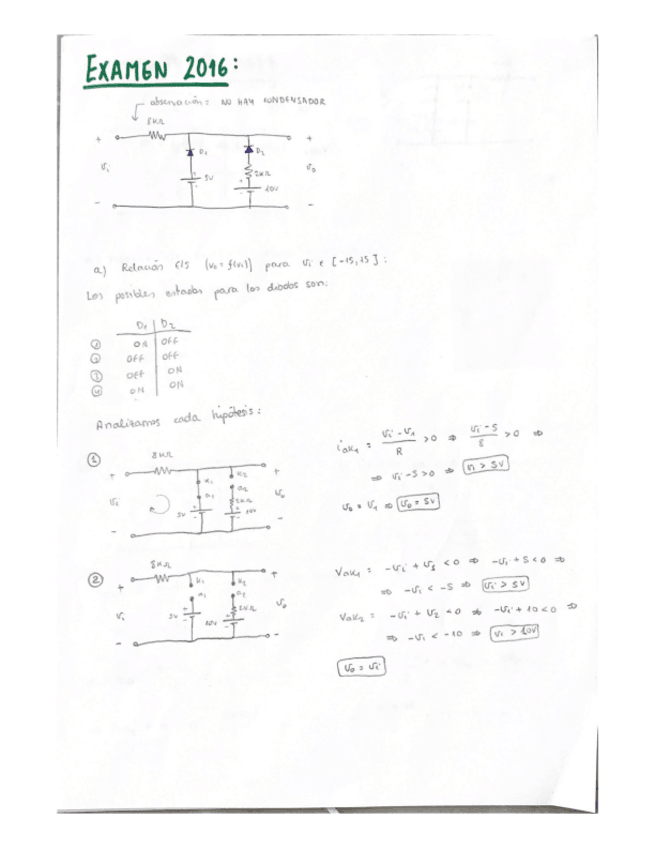 EXAMEN 2016:
observación: NO HAY CONDENSADOR
8KΩ
+ +
Vi D1 D2 Vo
5V 2KΩ
10V
- -
a) Relación E/S (vo = f(vi)) para vi ∈ [-15,15]:
Los posibles estados para los diodos son:
D1 | D2
① ON OFF
② OFF OFF
③ OFF ON
④ ON ON
Analizamos cada hipótesis:
①
8KΩ
+ K1 K2 +
Vi a1 a2 Vo
5V 2KΩ 10V
- -
iak1 = (Vi - V1)/R > 0 ⇒ (Vi - 5)/8 > 0 ⇒
⇒ Vi - 5 > 0 ⇒ Vi > 5V
Vo = V1 ⇒ Vo = 5V
②
8KΩ
+ K1 K2 +
Vi a1 a2 Vo
5V 2KΩ
10V
- -
Vak1 = -Vi + V1 < 0 ⇒ -Vi + 5 < 0 ⇒
⇒ -Vi < -5 ⇒ Vi > 5V
Vak2 = -Vi + V2 < 0 ⇒ -Vi + 10 < 0 ⇒
⇒ -Vi < -10 ⇒ Vi > 10V
Vo = Vi